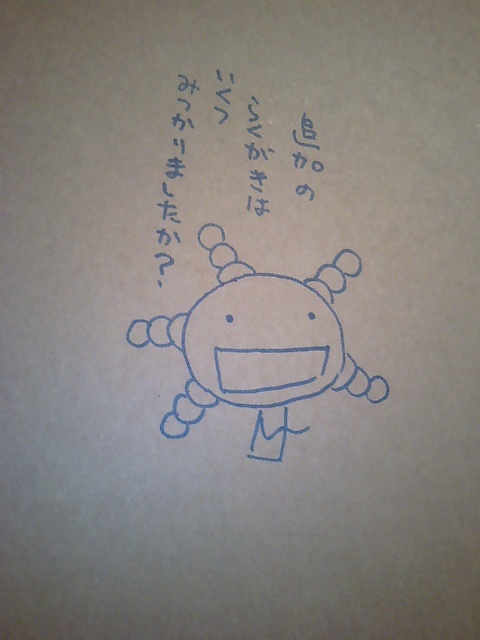 追加の
らくがきは
いくつ
みつかりましたか？